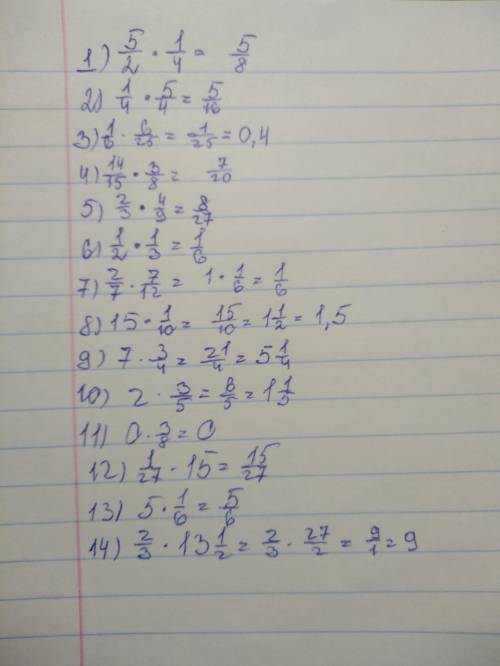 1) 5/2 · 1/4 = 5/8
2) 1/4 · 5/4 = 5/16
3) 1/6 · 6/25 = 1/25 = 0,4
4) 14/15 · 3/8 = 7/20
5) 2/3 · 4/9 = 8/27
6) 1/2 · 1/3 = 1/6
7) 2/7 · 7/12 = 1 · 1/6 = 1/6
8) 15 · 1/10 = 15/10 = 1 1/2 = 1,5
9) 7 · 3/4 = 21/4 = 5 1/4
10) 2 · 3/5 = 6/5 = 1 1/5
11) 0 · 3/8 = 0
12) 1/27 · 15 = 15/27
13) 5 · 1/6 = 5/6
14) 2/3 · 13 1/2 = 2/3 · 27/2 = 9/1 = 9